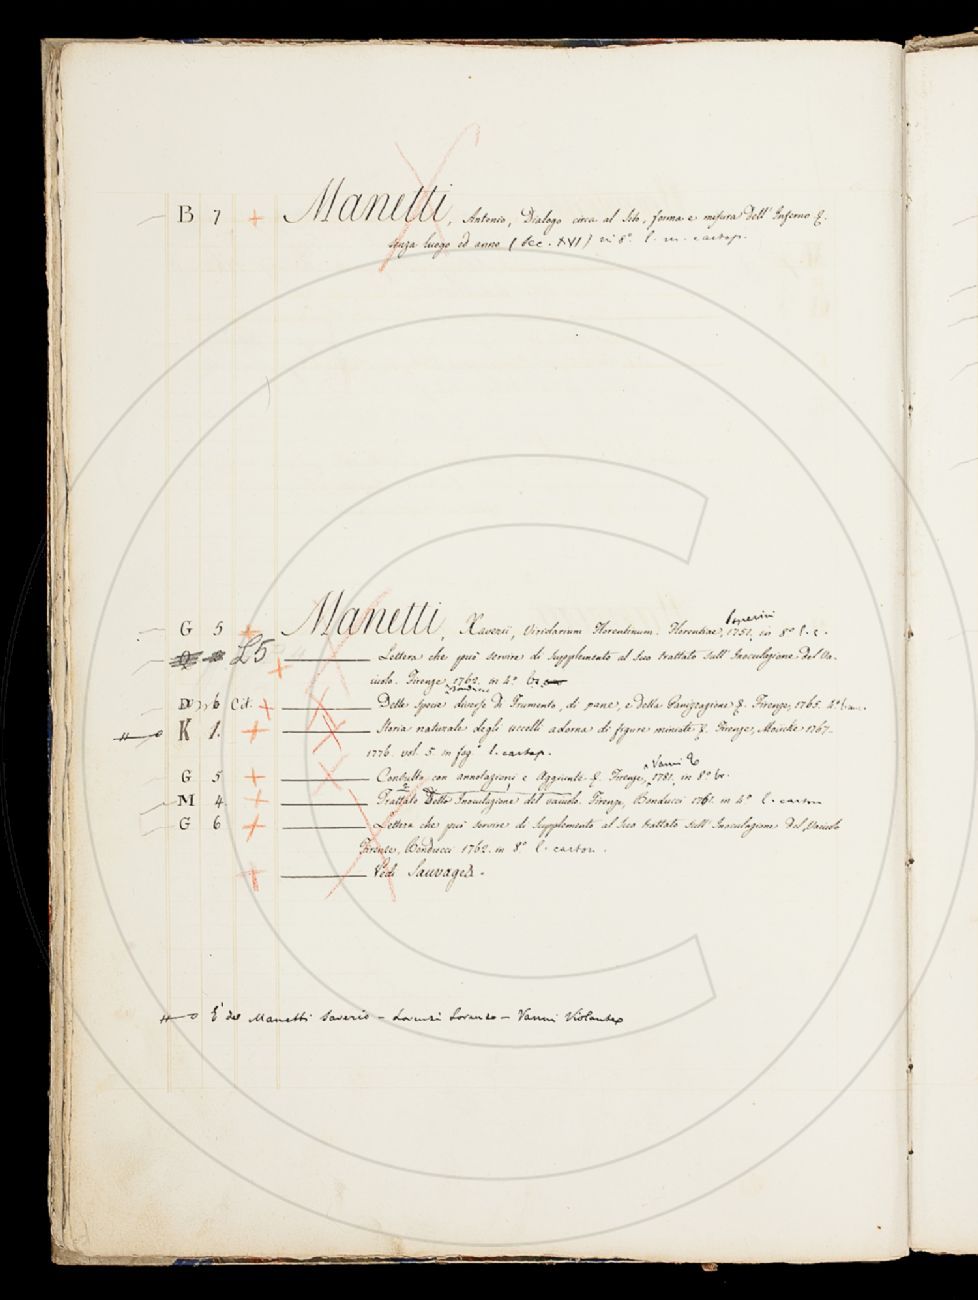 B 7 + Manetti, Antonio, Dialogo circa al Sito, forma e misura dell'Inferno &.
senza luogo ed anno (Sec. XVI) in 8° l. m. cartap.
Imperiii
G 5 + Manetti, Xaverii, Viridarium Florentinum. Florentiae, 1751. in 8° l. c.
L5 + Lettera che può servire di Supplemento al Suo trattato Sull'Inoculazione del Va-
iuolo. Firenze, 1762. in 4° br
Bonducci
D 6 Cit. + Delle Specie diverse di Frumento, di pane, e della Panizzazione &. Firenze, 1765. 4° br
K 1. + Storia naturale degli uccelli adorna di figure miniate &. Firenze, Moücke 1767.
1776. vol. 5. in fog° l. cartap.
Vanni
G 5 + Consulto con annotazioni e Aggiunte &. Firenze, 1781. in 8° br.
M 4. + Trattato Della Inoculazione del vaiuolo. Firenze, Bonducci 1761. in 4° l. carton
G 6 + Lettera che può servire di Supplemento al Suo trattato Sull'Inoculazione Del Vaiuolo
Firenze, Bonducci 1762. in 8° l. carton.
+ Vedi Sauvages.
E' del Manetti Saverio - Lorenzi Lorenzo - Vanni Violante